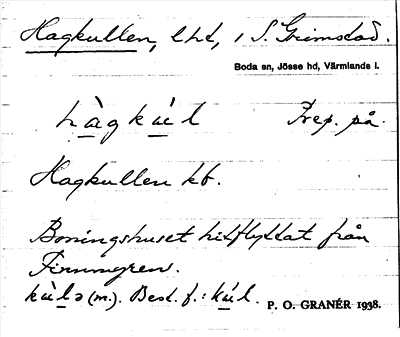 Hagkullen, lht, i S. Grimstad.
Boda sn, Jösse hd, Värmlands l.
hàgkúl Prep. på.
Hagkullen kb.
Boningshuset hitflyttat från
Finnmyren.
kùlə (m.). Best. f.: kúl.
P. O. GRANÉR 1938.